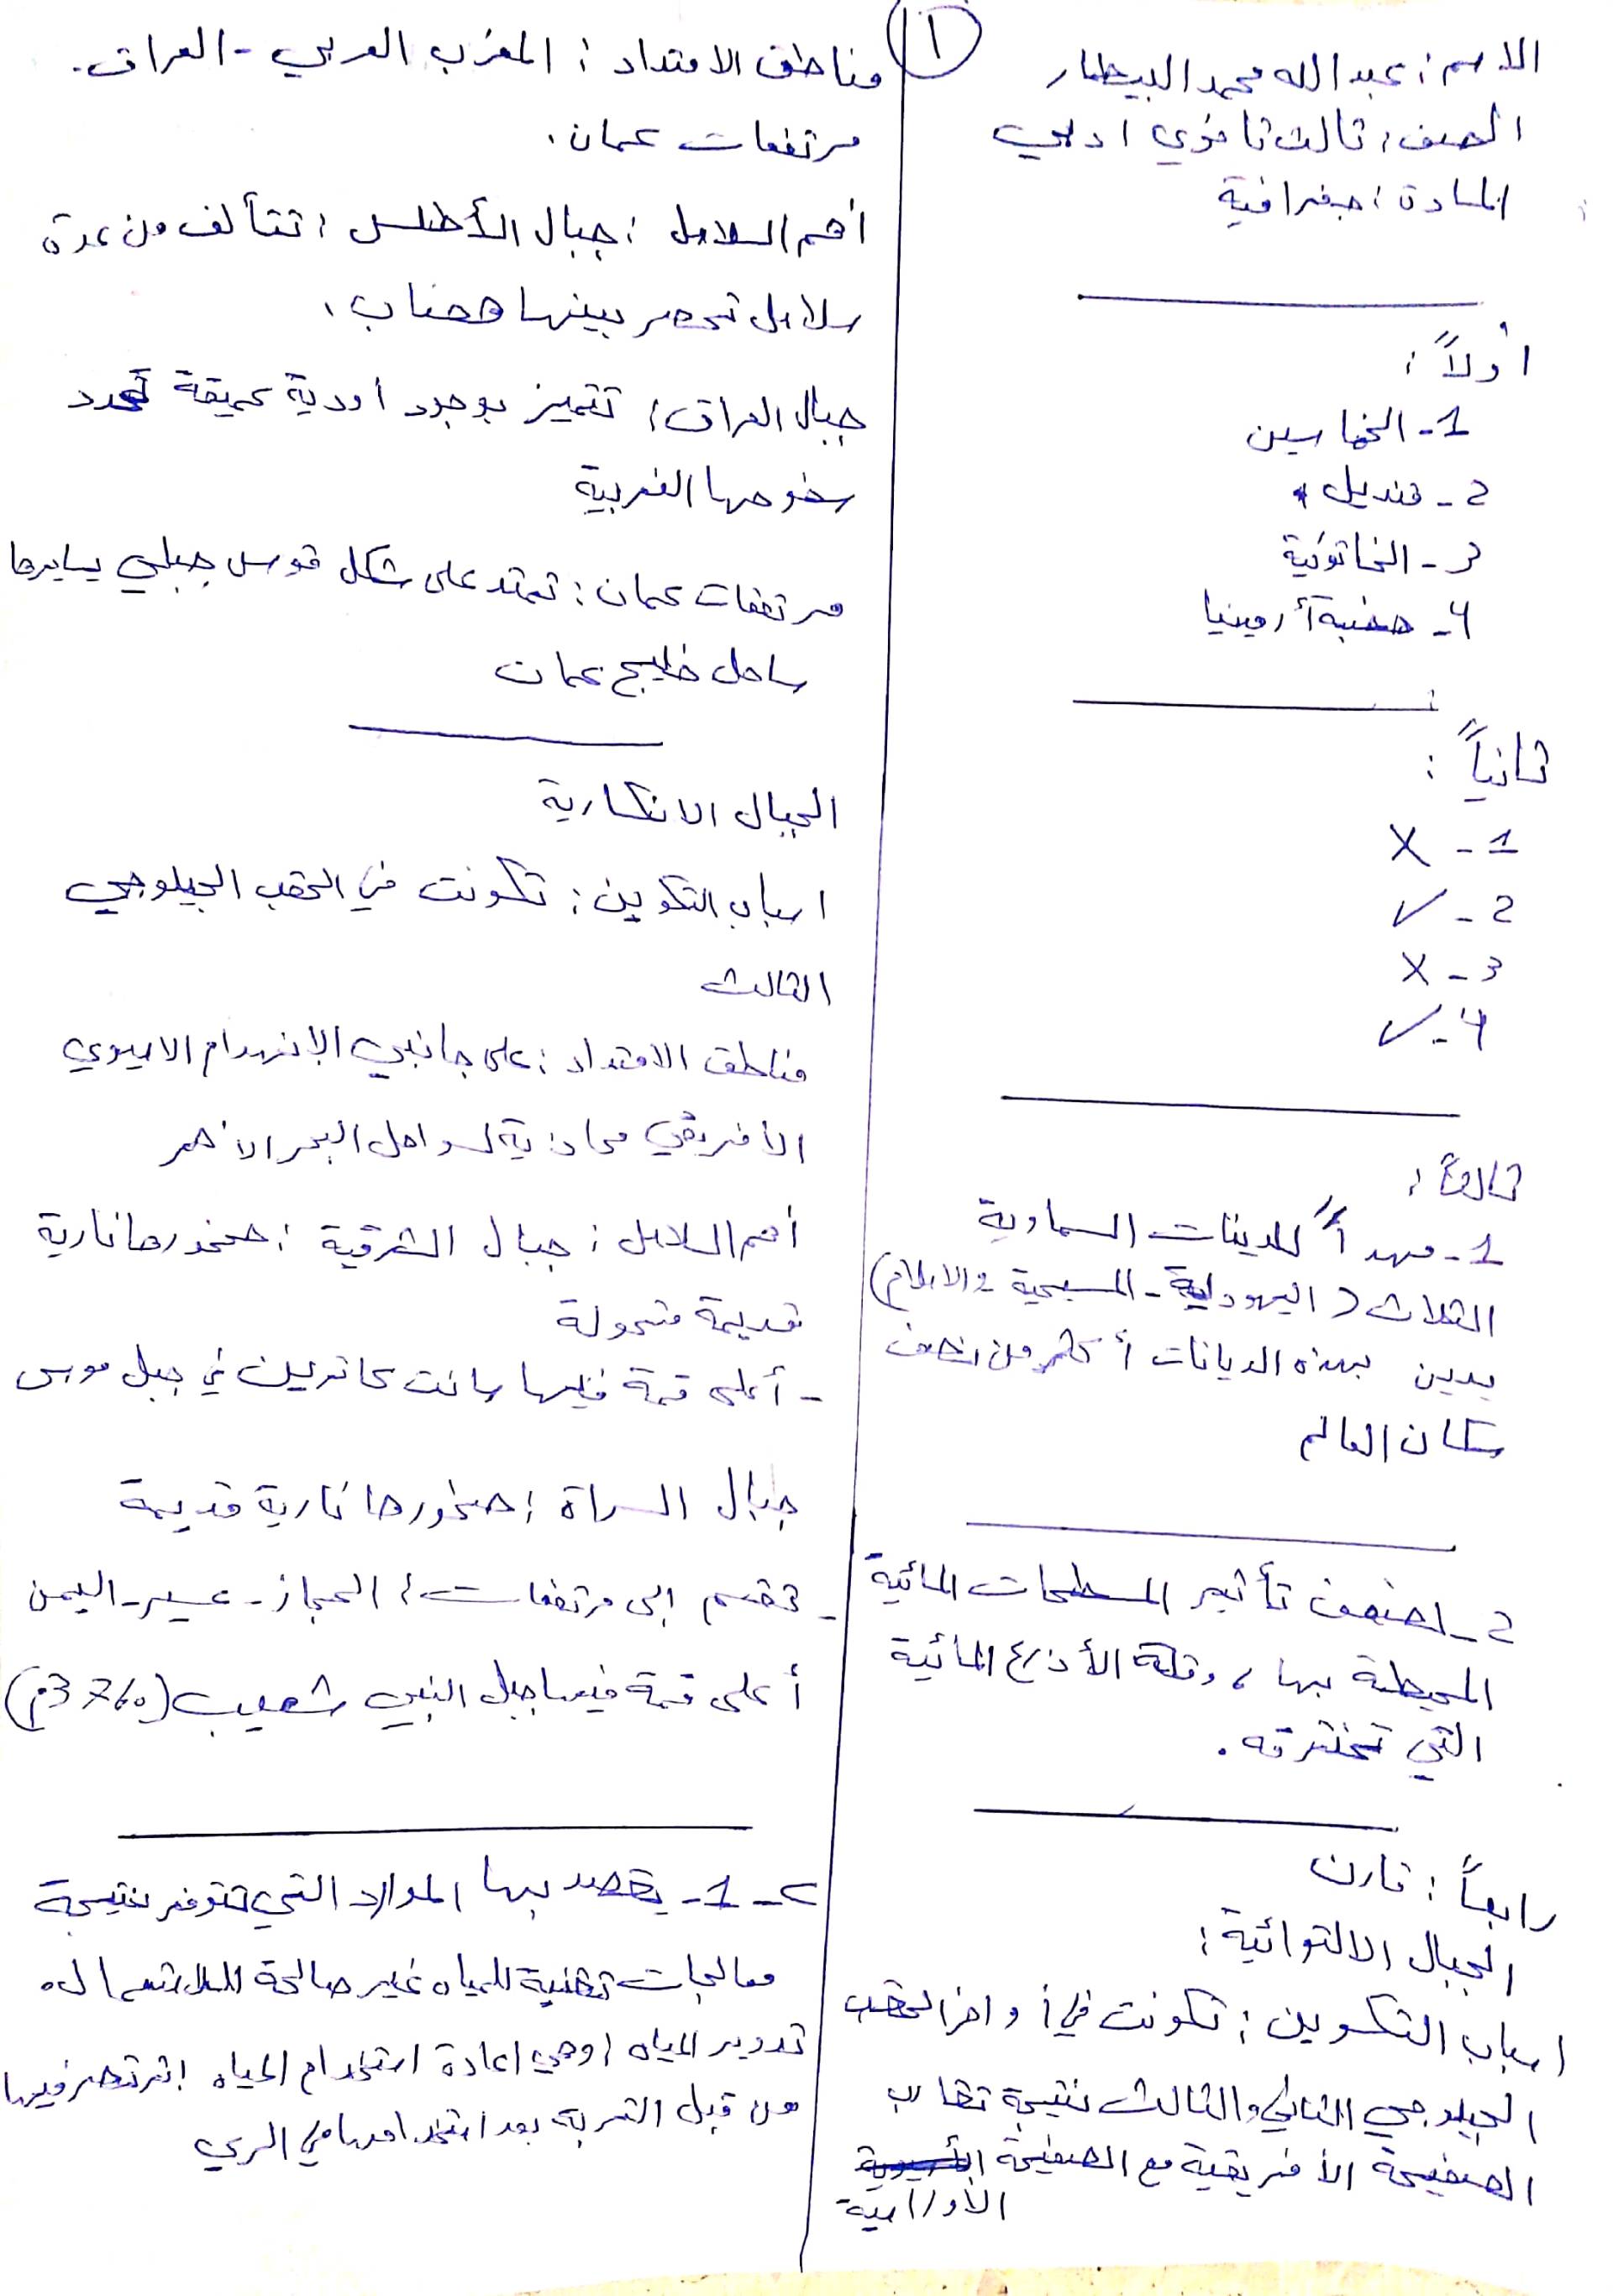 ١
الاسم : عبد الله محمد البيطار
الصف : ثالث ثانوي ادبي
المادة : جغرافية
أولاً :
1 - الخماسين
2 - قنديل
3 - الخاتونية
4 - هضبة أرمينيا
ثانياً :
1 - X
2 - ✓
3 - X
4 - ✓
ثالثاً :
1 - مهداً للدينات السماوية
الثلاث (اليهودية - المسيحية - والاسلام)
يدين بهذه الديانات أكثر من نصف
سكان العالم
2 - لضعف تأثير المسطحات المائية
المحيطة بها ، وقلة الأذرع المائية
التي تخترقه .
رابعاً : قارن
الجبال الالتوائية :
اسباب التكوين : تكونت في أواخر الحقب
الجيلوجي الثاني والثالث نتيجة تقارب
الصفيحة الأفريقية مع الصفيحة
الأوراسية
مناطق الامتداد : المغرب العربي - العراق .
مرتفعات عمان .
أهم السلاسل : جبال الأطلس : تتألف من عدة
سلاسل تحصر بينها هضاب .
جبال العراق : تتميز بوجود أودية عميقة تحدد
سفوحها الغربية
مرتفعات عمان : تمتد على شكل قوس جبلي يسايرها
ساحل خليج عمان
الجبال الانكسارية
اسباب التكوين : تكونت في الحقب الجيلوجي
الثالث
مناطق الامتداد : على جانبي الإنهدام الاسيوي
الأفريقي محاذية لسواحل البحر الأحمر
أهم السلاسل : جبال الشرقية : صخورها نارية
قديمة متحولة
- أعلى قمة فيها سانت كاترين في جبل موسى
جبال السراة : صخورها نارية قديمة
- تقسم الى مرتفعات : الحجاز - عسير - اليمن
أعلى قمة فيها جبل النبي شعيب (3760م)
2 - 1 - يقصد بها الموارد التي تتوفر نتيجة
معالجات تقنية للمياه غير صالحة للاستعمال .
تدوير المياه : وهي اعادة استخدام المياه
من قبل التربة بعد استخدامها في الري